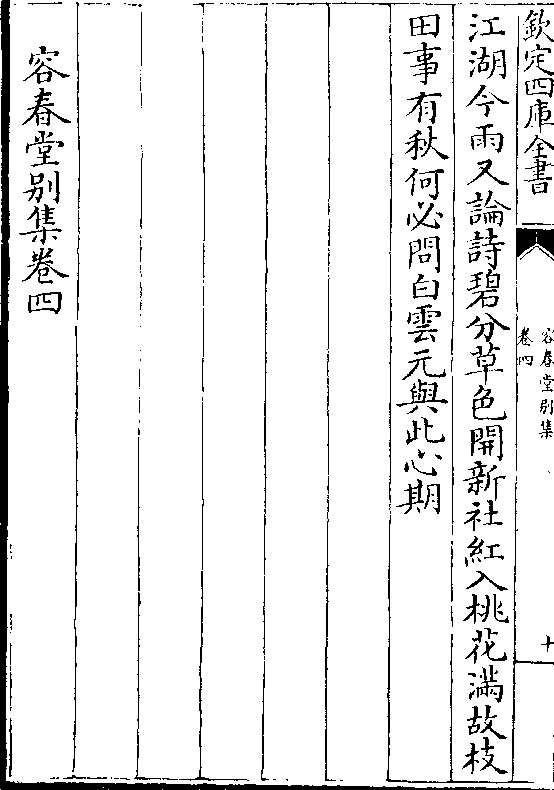 欽定四庫全書
容春堂别集
卷四
十
江湖今雨又論詩碧分草色開新社紅入桃花滿故枝
田事有秋何必問白雲元與此心期
容春堂别集卷四